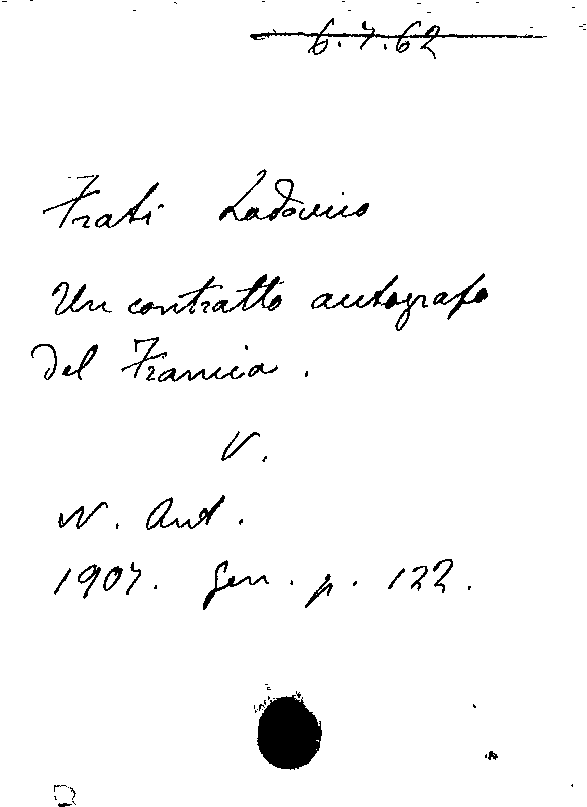 6.7.62
Frati Lodovico
Un contratto autografo
del Francia.
V.
N. Ant.
1907. Gen. p. 122.